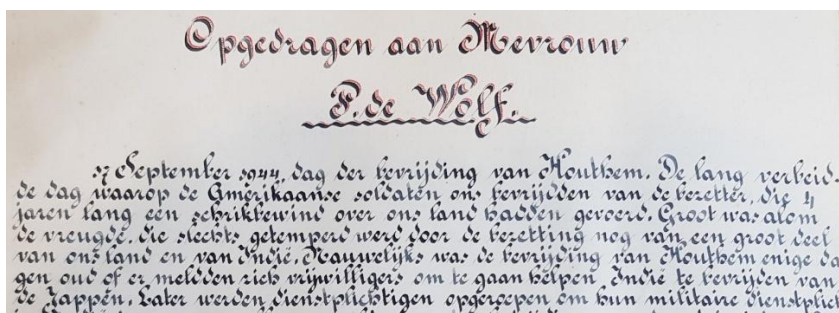 Opgedragen aan Mevrouw
P. de Wolf.
17 September 1944, dag der bevrijding van Houthem. De lang verbeid-
de dag waarop de Amerikaanse soldaten ons bevrijdden van de bezetter, die 4
jaren lang een schrikbewind over ons land hadden gevoerd. Groot was alom
de vreugde, die slechts getemperd werd door de bezetting nog van een groot deel
van ons land en van Indië. Nauwelijks was de bevrijding van Houthem enige da-
gen oud of er meldden zich vrijwilligers om te gaan helpen Indië te bevrijden van
de Jappen. Later werden dienstplichtigen opgeroepen om hun militaire dienstplich